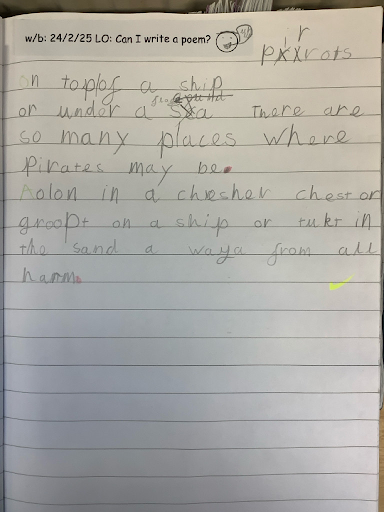 w/b: 24/2/25 LO: Can I write a poem?
r
pxxrots
on toplof a ship
or under a sxa There are
so many places where
Pirates may be.
Aolon in a chesher chest or
groopt on a ship or tukt in
the sand a waya from all
harm.